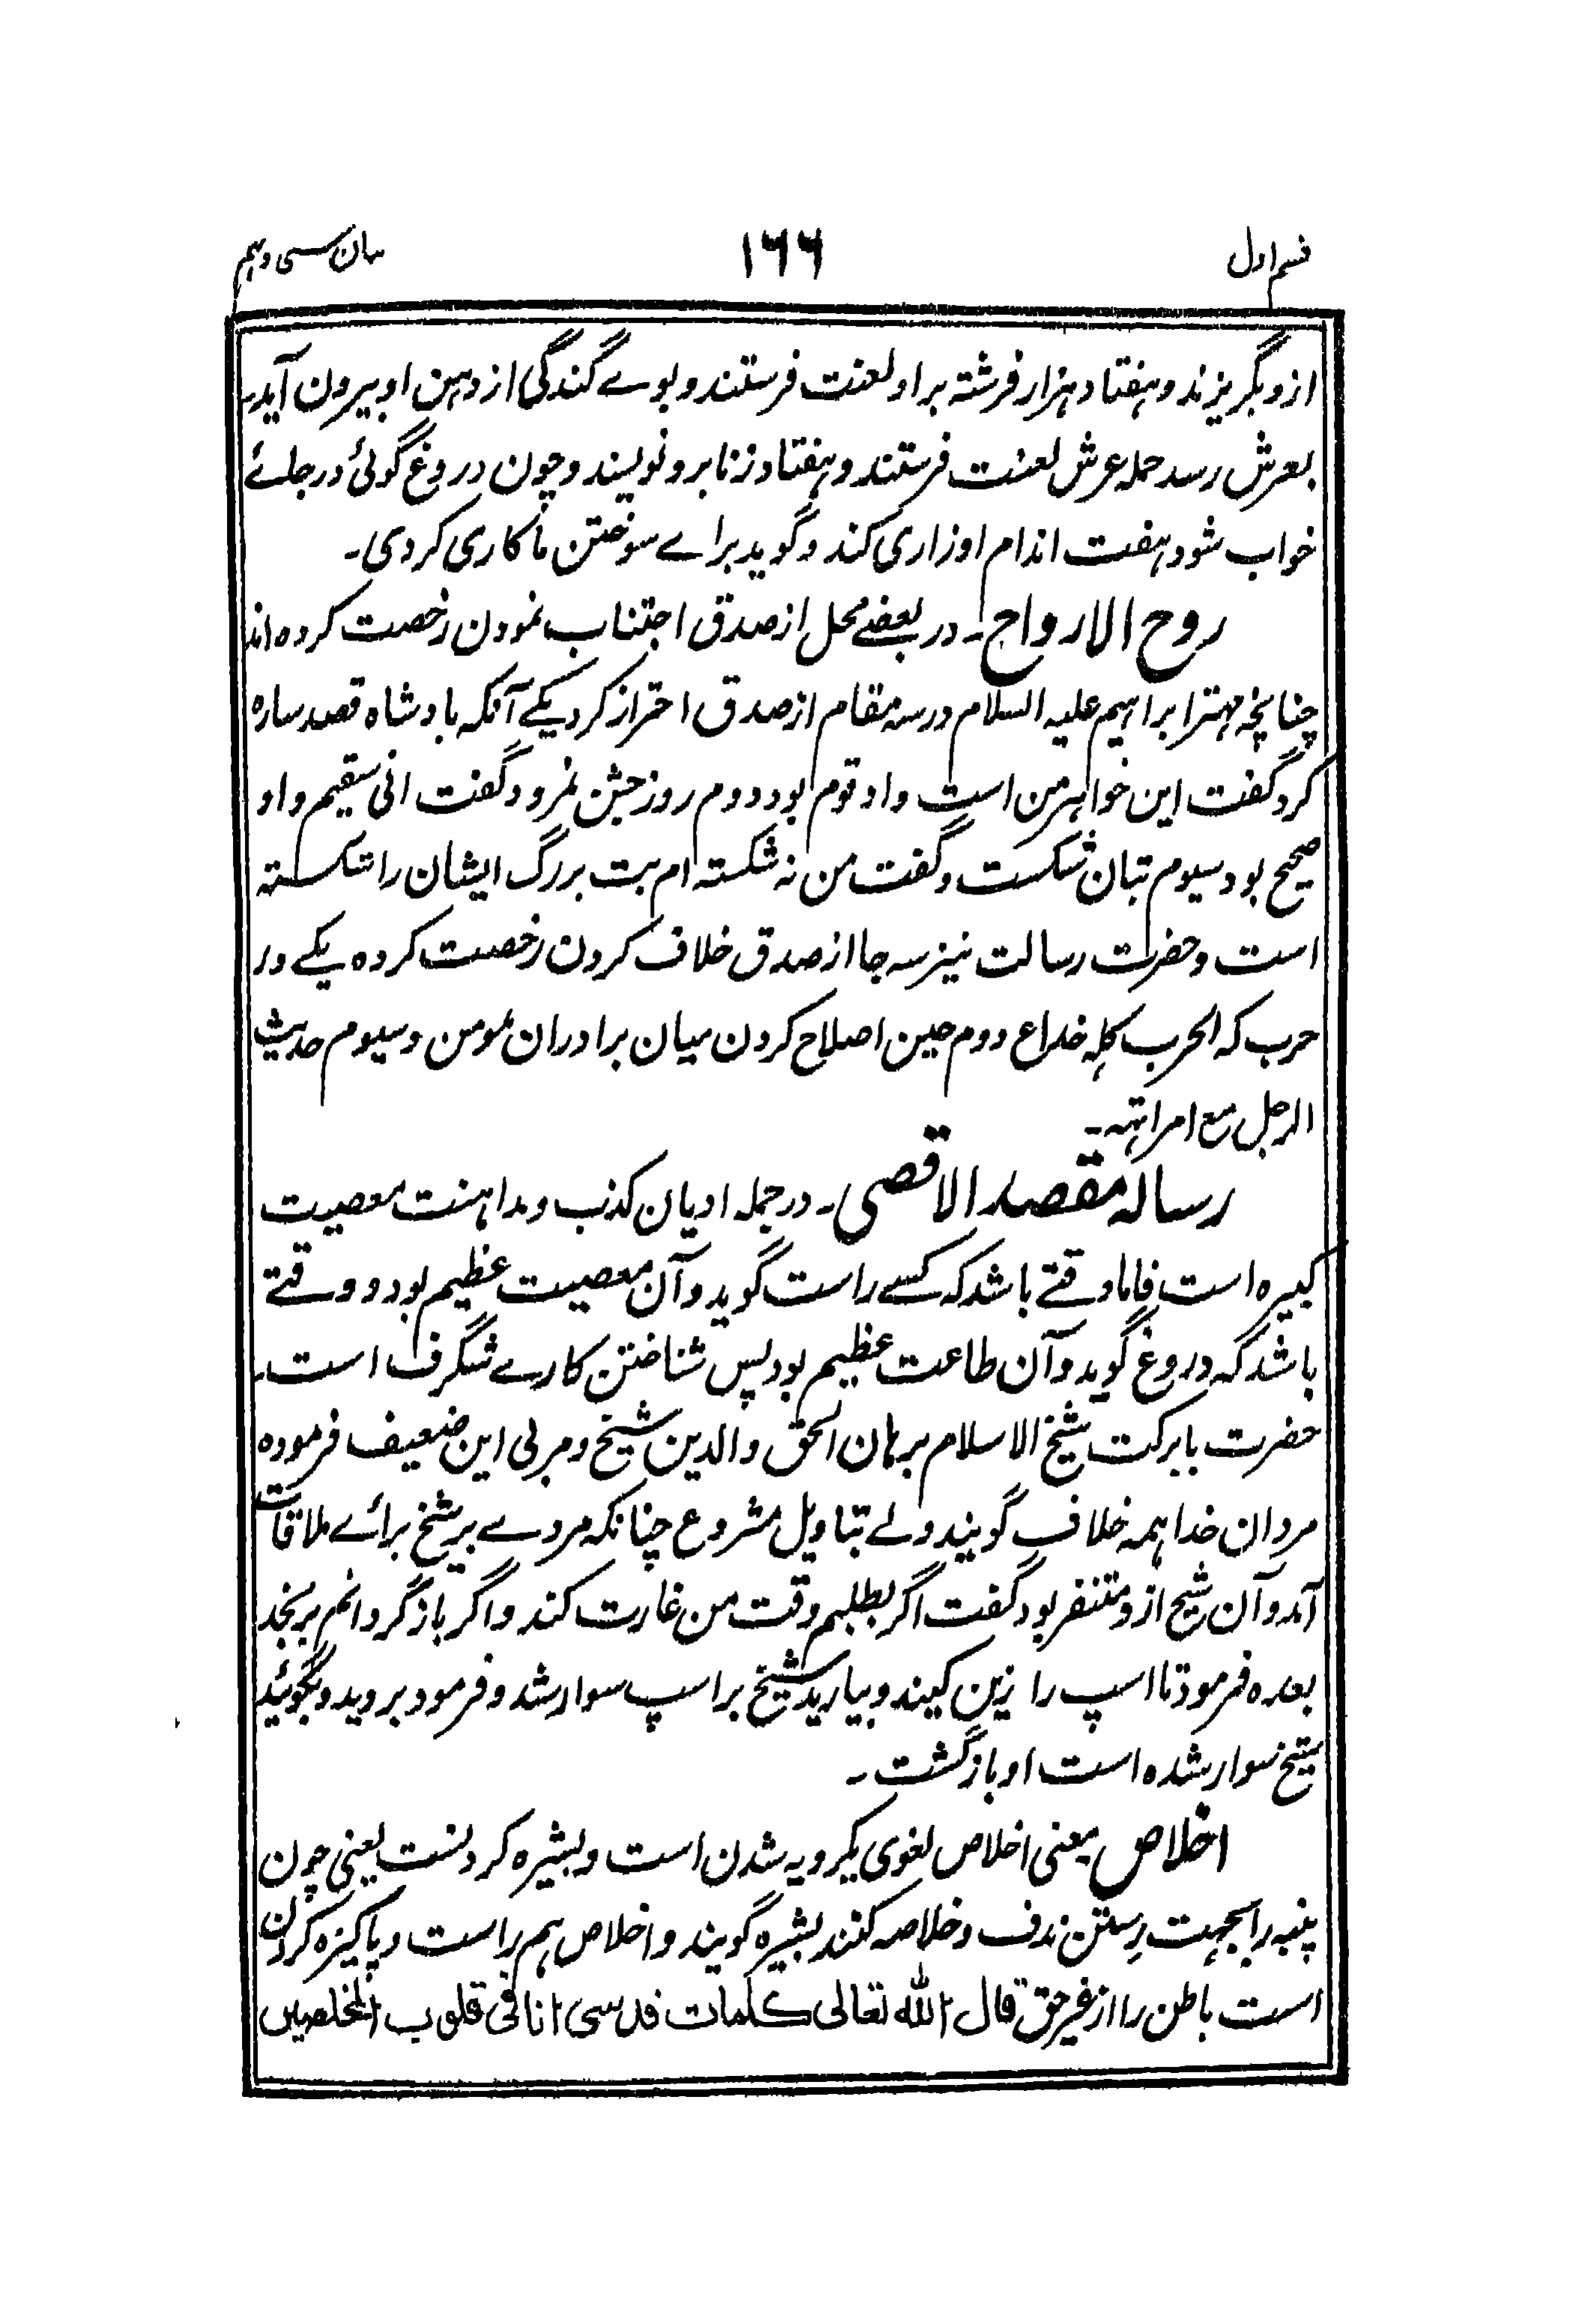 قسم اول ۱۶۶ بیان سی و نہم
ازو بگریزند و ہفتاد ہزار فرشتہ براو لعنت فرستند و بوے گندگی از دہن او بیرون آید۔
بعرش رسد حملہ عرش لعنت فرستند و ہفتاد زنا برو نویسند و چون دروغ گوئی در جائے
خواب شود ہفت اندام او زاری کند و گوید براے سوختن ما کاری کردی۔
روح الارواح۔ در بعضے محل از صدق اجتناب نمودن رخصت کردہ اند
چنانچہ مہتر ابراہیم علیہ السلام در سہ مقام از صدق احتراز کرد یکے آنکہ بادشاہ قصد سارہ
کرد گفت این خواہر من است و او قوم بود دوم روز جشن نمرود گفت انی سقیم و او
صحیح بود سیوم بتان شکست و گفت من نہ شکستہ ام بت بزرگ ایشان را شکستہ
است و حضرت رسالت نیز سہ جا از صدق خلاف کردن رخصت کردہ یکے در
حرب کہ الحرب کلہ خداع دوم حین اصلاح کردن میان برادران مومن و سیوم حدیث
الرجل مع امراتہ۔
رسالہ مقصد الاقصی۔ در جملہ ادیان کذب و مداہنت معصیت
کبیرہ است فاما وقتے باشد کہ کسے راست گوید و آن معصیت عظیم بود و وقتے
باشد کہ دروغ گوید و آن طاعت عظیم بود پس شناختن کارے شگرف است۔
حضرت بابرکت شیخ الاسلام برہان الحق والدین شیخ و مربی این ضعیف فرمودہ
مردان خدا ہمہ خلاف گویند ولے بتاویل مشروع چنانکہ مردے بر شیخ برائے ملاقات
آمد و آن شیخ ازو متنفر بود گفت اگر بطلبم وقت من غارت کند و اگر بازگردانم برنجد
بعدہ فرمود تا اسپ را زین کنید و بیارید شیخ بر اسپ سوار شد و فرمود بروید و بگوئید
شیخ سوار شدہ است او بازگشت۔
اخلاص معنی اخلاص لغوی یکرویہ شدن است و بشیرہ کردنست یعنی چون
پنبہ را بجہت رِستن ندف و خلاصہ کنند بشیرہ گویند و اخلاص ہم راست و پاکیزہ کردن
است باطن را از غیر حق قال اللہ تعالی کلمات قدسی انا فی قلوب المخلصین